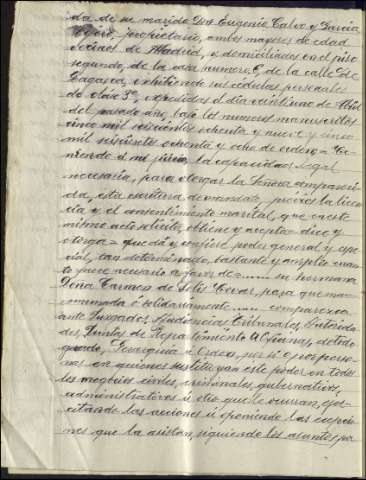 da de su marido Don Eugenio Calvo y García
propietario, ambos mayores de edad
vecinos de Madrid, y domiciliados en el piso
segundo, de la casa numero, de la calle de
Lagasca, exhibiendo sus cédulas personales
de clase 3ª, expedidas el dia veintiuno de Abril
del pasado año, bajo los numeros manuscritos
cinco mil seiscientos ochenta y nueve y cinco
mil seiscientos ochenta y ocho de orden = Te-
niendo á mi juicio, la capacidad legal
necesaria, para otorgar la Señora compareci-
da, esta escritura de mandato, previos la licen-
cia y el consentimiento marital, que en este
mismo acto solicita, obtiene y acepta = dice y
otorga = que dá y confiere poder general y espe-
cial, tan determinado, bastante y amplio cuan-
to fuere necesario a favor de su hermana
Doña Carmen de Solis para que man-
comunada ó solidariamente comparezca
ante Juzgados, Audiencias, Tribunales, Autorida-
des, Juntas de Repartimiento, Oficinas,
grado, Gerarquia ú Orden, por sí ó por perso-
nas en quienes sustituyan este poder en todos
los negocios civiles, criminales, gubernativos,
administrativos ú otro que le ocurran, ejer-
citando las acciones ú oponiendo las excepcio-
nes que la asistan, siguiendo los asuntos por